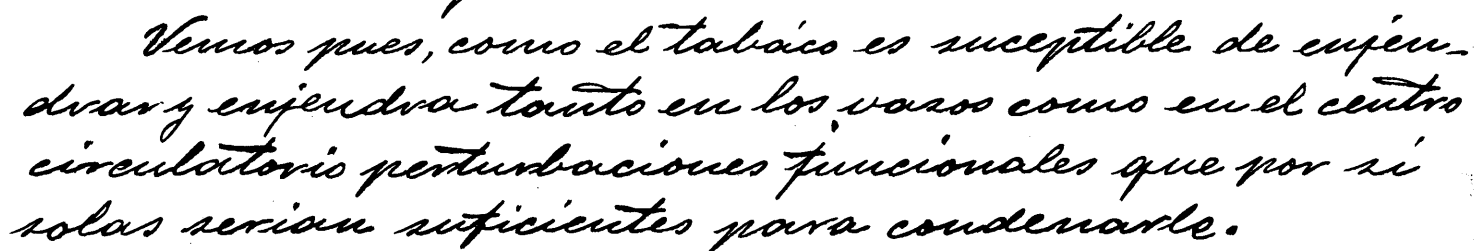 Vemos pues, como el tabáco es suceptible de enjen-
drar y enjendra tanto en los vasos como en el centro
circulatorio perturbaciones funcionales que por si
solas serian suficientes para condenarle.